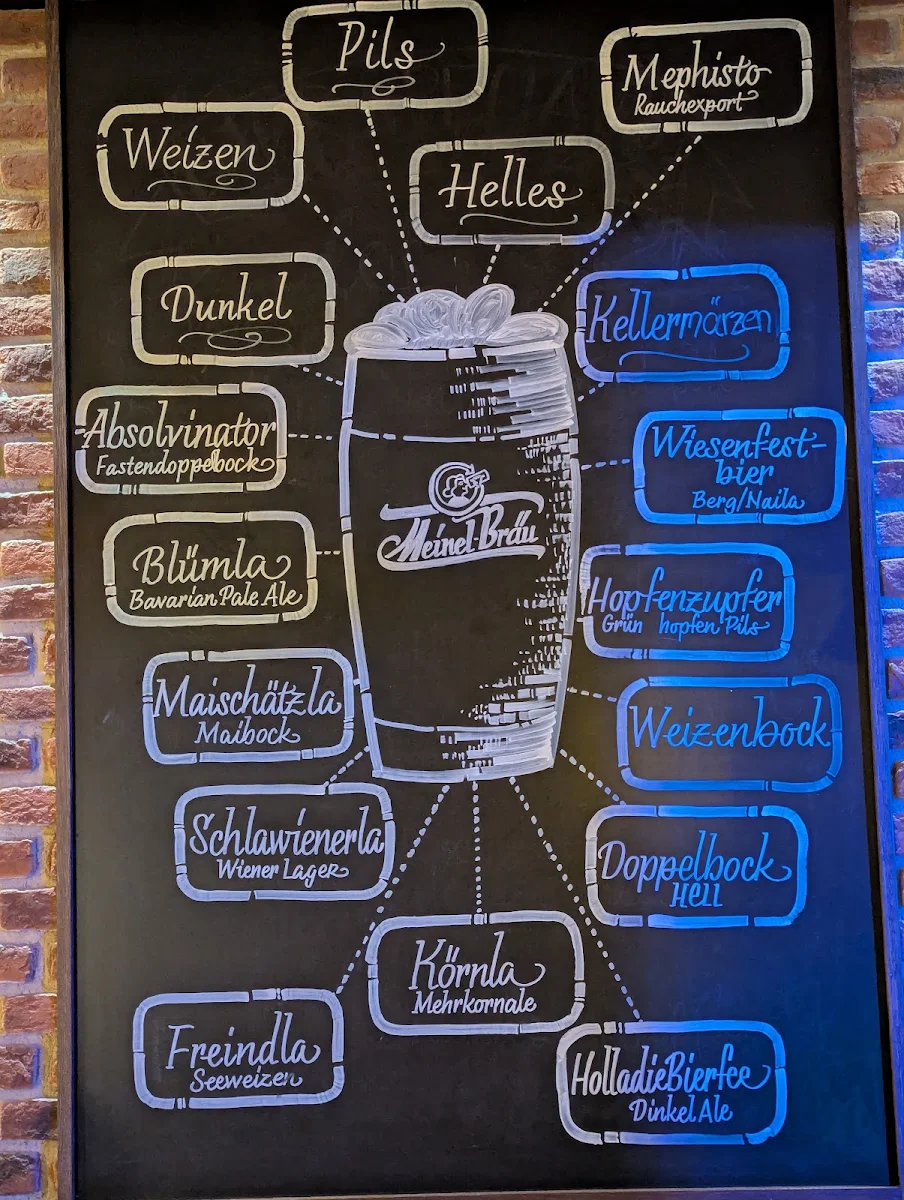 Pils
Mephisto
Rauchexport
Weizen
Helles
Dunkel
Kellermärzen
Absolvinator
Fastendoppelbock
Wiesenfest-
bier
Berg/Naila
Meinel-Bräu
Blümla
Bavarian Pale Ale
Hopfenzupfer
Grün hopfen Pils
Maischätzla
Maibock
Weizenbock
Schlawienerla
Wiener Lager
Doppelbock
Hell
Körnla
Mehrkornale
Freindla
Seeweizen
HolladieBierfee
Dinkel Ale